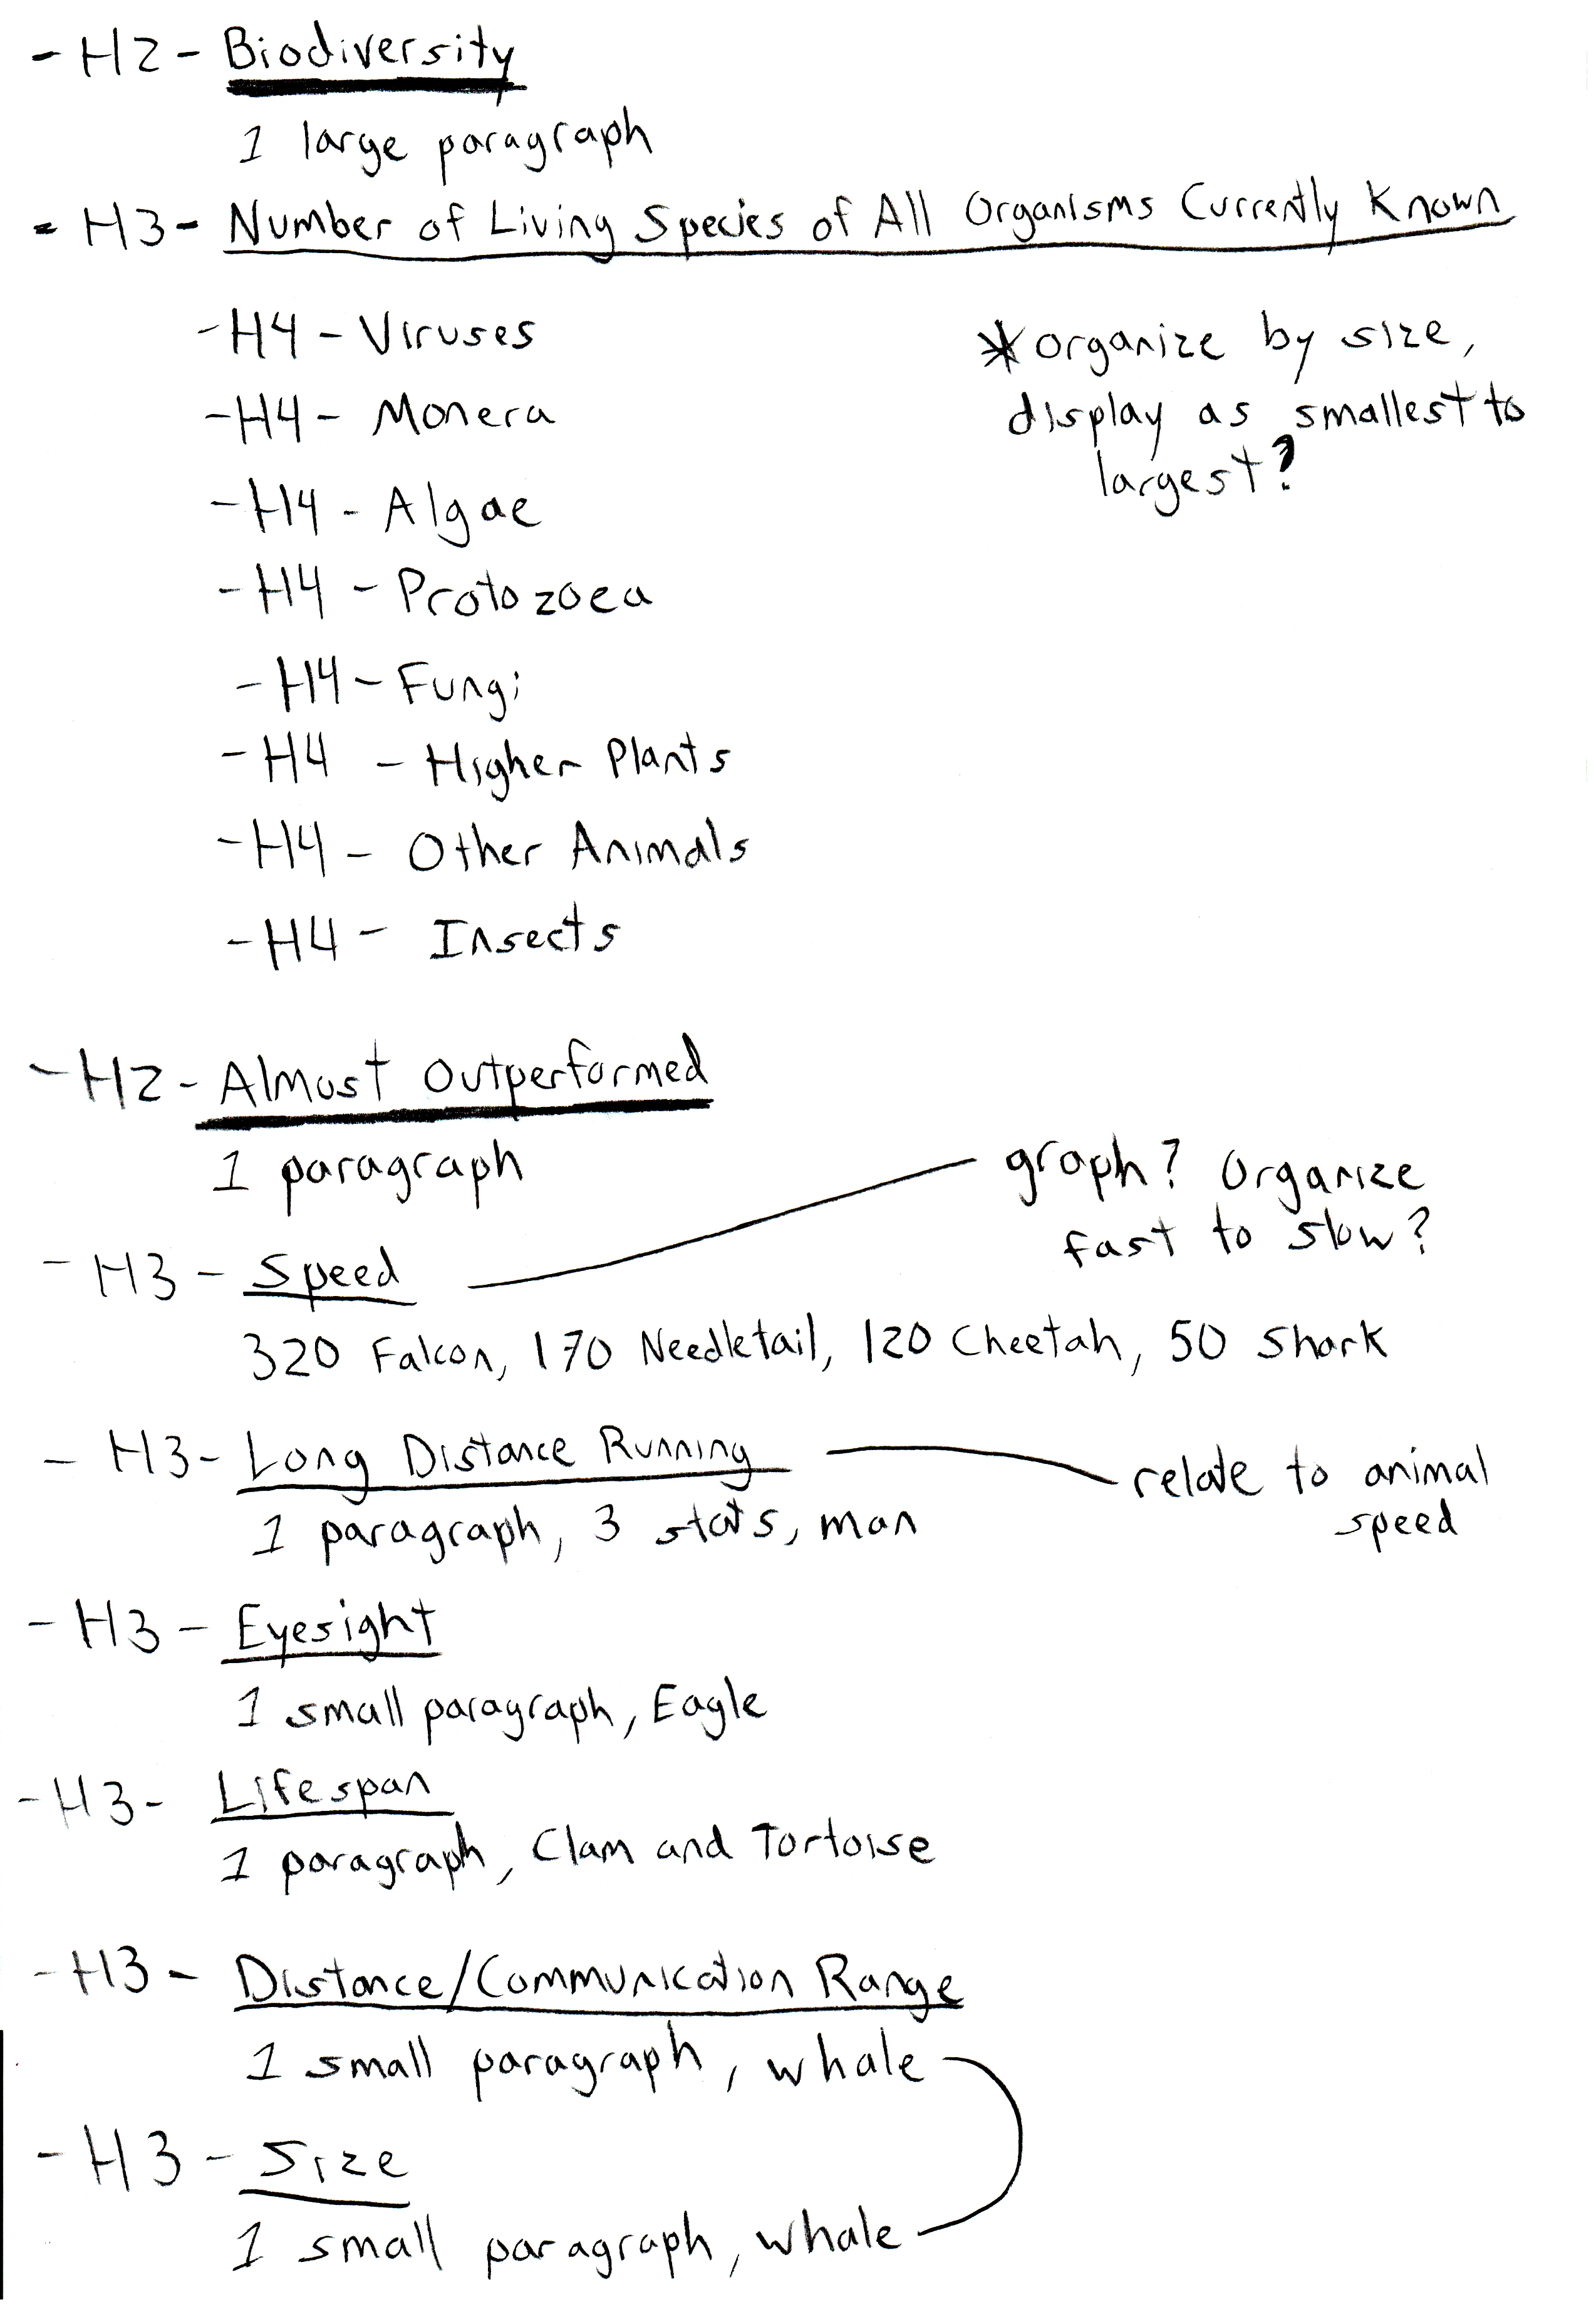 - H2 - Biodiversity
1 large paragraph
- H3 - Number of Living Species of All Organisms Currently Known
- H4 - Viruses
- H4 - Monera
- H4 - Algae
- H4 - Protozoea
- H4 - Fungi
- H4 - Higher Plants
- H4 - Other Animals
- H4 - Insects
* organize by size,
display as smallest to
largest?
- H2 - Almost Outperformed
1 paragraph
graph? Organize
fast to slow?
- H3 - Speed
320 Falcon, 170 Needletail, 120 Cheetah, 50 Shark
- H3 - Long Distance Running
1 paragraph, 3 stats, man
relate to animal
speed
- H3 - Eyesight
1 small paragraph, Eagle
- H3 - Lifespan
1 paragraph, Clam and Tortoise
- H3 - Distance/Communication Range
1 small paragraph, whale
- H3 - Size
1 small paragraph, whale